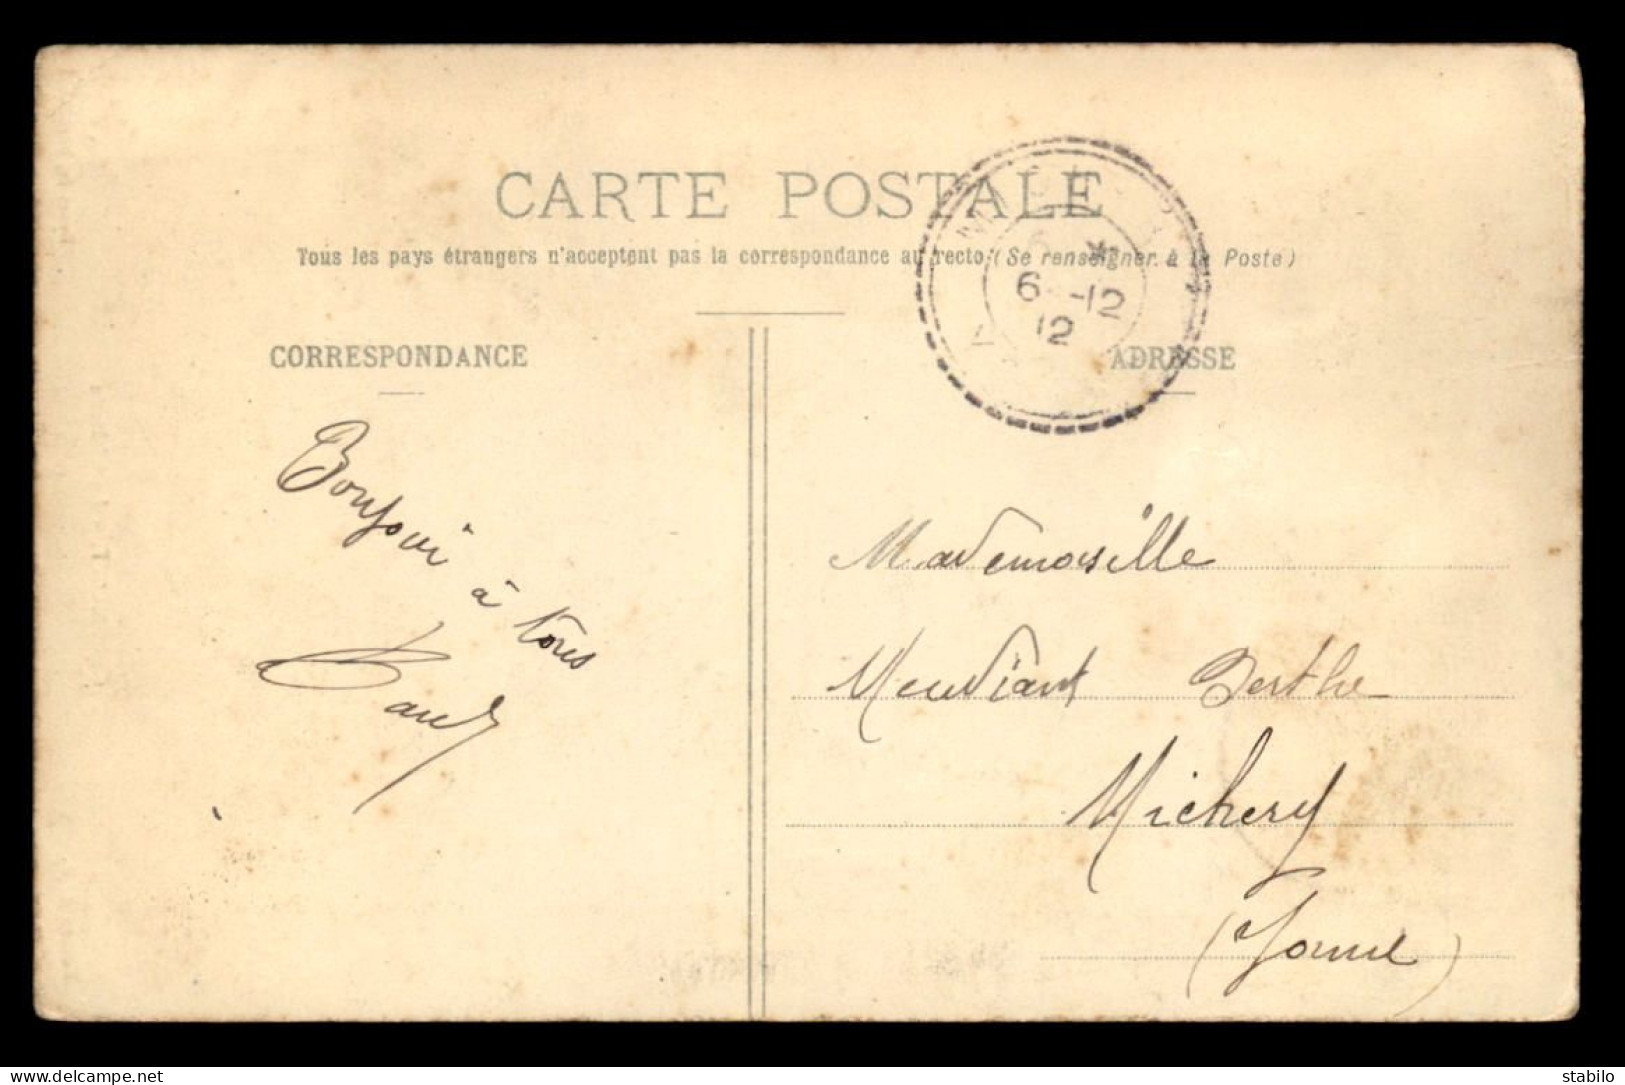 CARTE POSTALE
Tous les pays étrangers n'acceptent pas la correspondance au recto (Se renseigner à la Poste)
6 *
6 -12
12
CORRESPONDANCE
ADRESSE
Bonjour
à tous
Mademoiselle
Berthe
Michery
(Yonne)
delcampe.net
stabilo